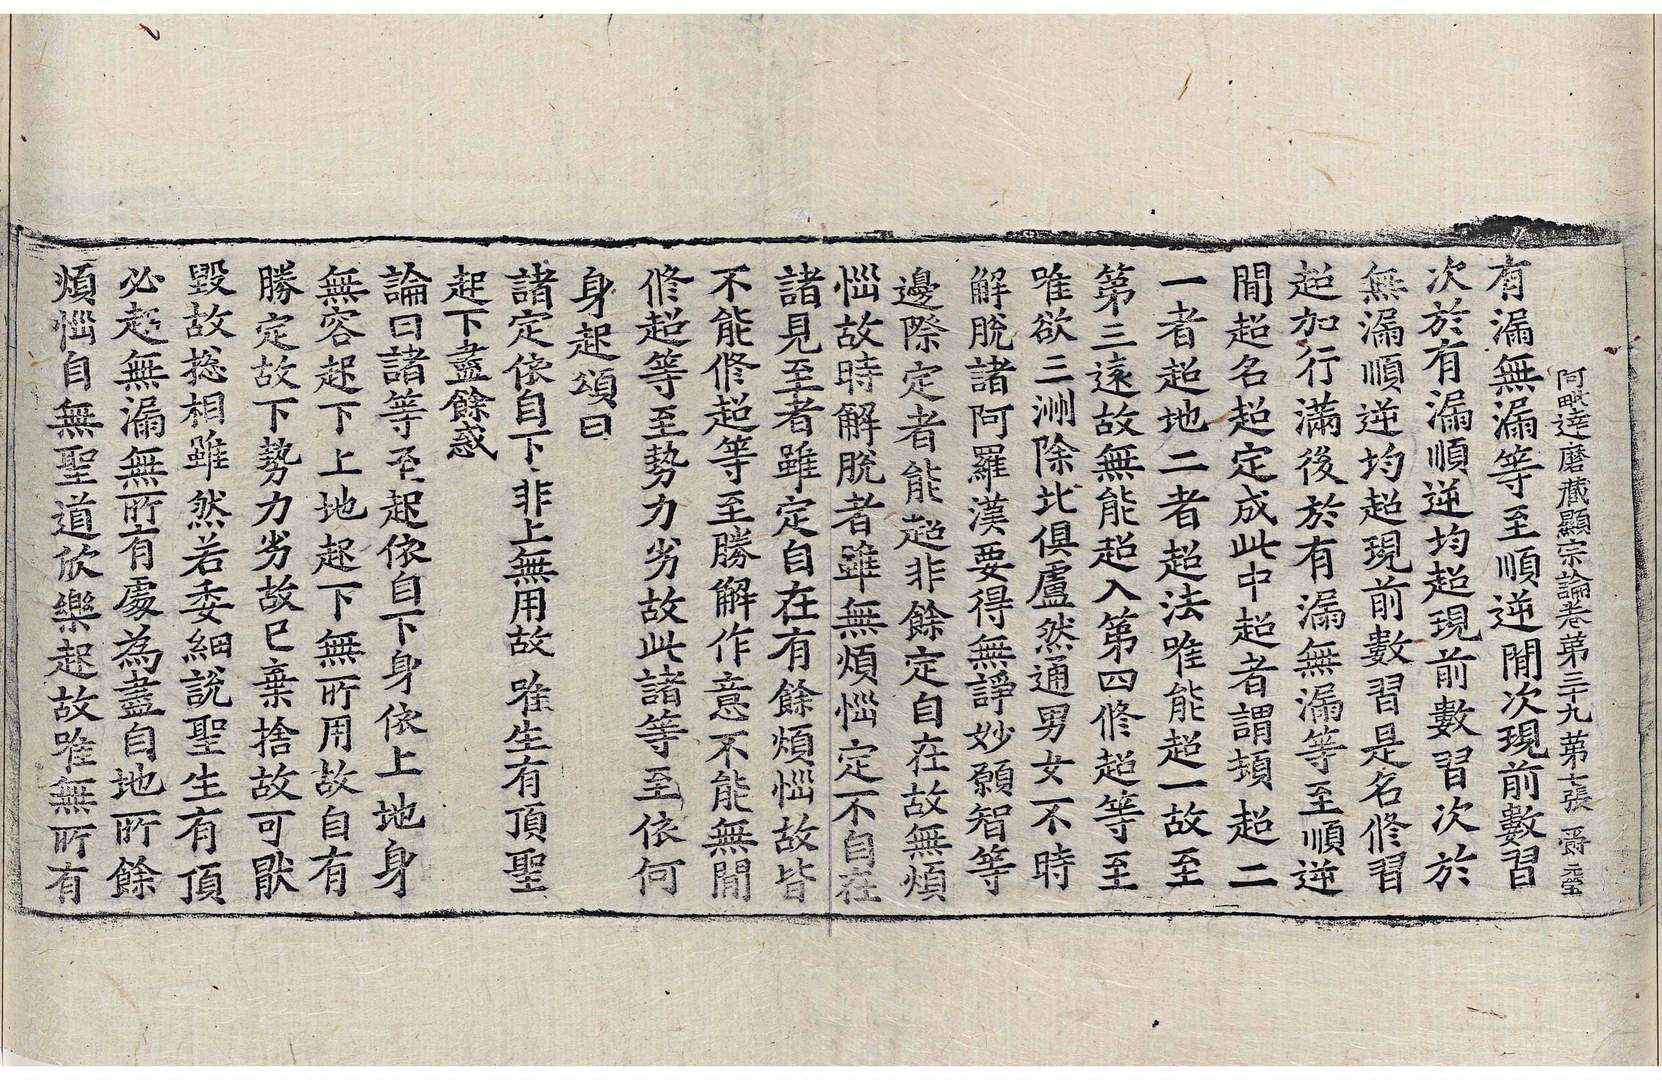 阿毗達磨藏顯宗論卷第三十九 第七張 爵 元瑩
有漏無漏等至順逆間次現前數習
次於有漏順逆均超現前數習次於
無漏順逆均超現前數習是名修習
超加行滿後於有漏無漏等至順逆
間超名超定成此中超者謂頓超二
一者超地二者超法唯能超一故至
第三遠故無能超入第四修超等至
唯欲三洲除北俱盧然通男女不時
解脫諸阿羅漢要得無諍妙願智等
邊際定者能超非餘定自在故無煩
惱故時解脫者雖無煩惱定不自在
諸見至者雖定自在有餘煩惱故皆
不能修超等至勝解作意不能無間
修超等至勢力劣故此諸等至依何
身起頌曰
諸定依自下 非上無用故 唯生有頂聖
起下盡餘惑
論曰諸等至起依自下身依上地身
無容起下上地起下無所用故自有
勝定故下勢力劣故已棄捨故可厭
毀故捴相雖然若委細說聖生有頂
必起無漏無所有處為盡自地所餘
煩惱自無聖道欣樂起故唯無所有